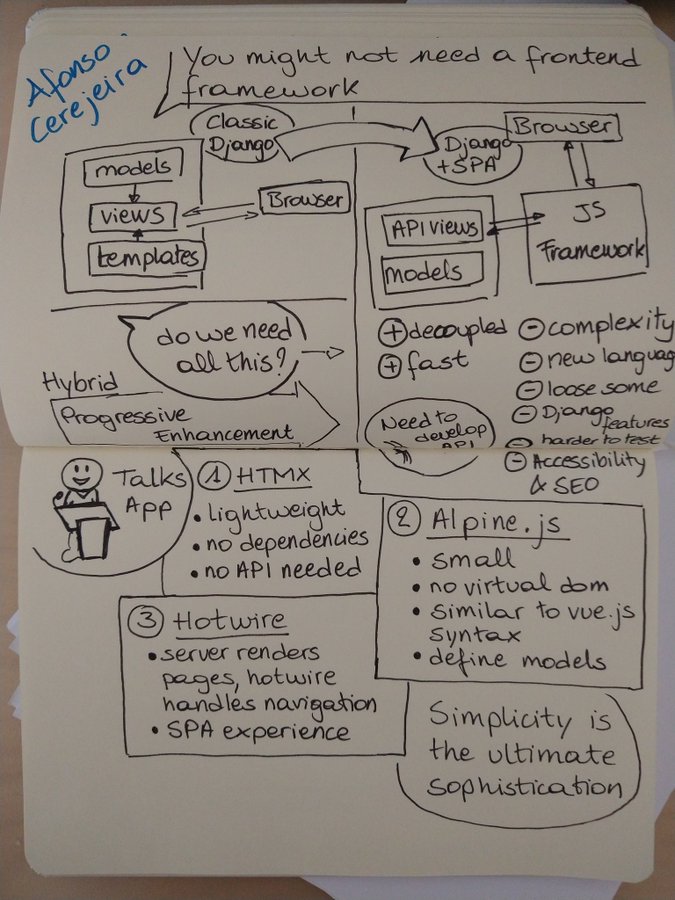 Afonso
Cerejeira
You might not need a frontend
framework
Classic
Django
models
views
templates
Browser
Django
+ SPA
Browser
API views
models
JS
Framework
+ decoupled
+ fast
- complexity
- new languag
- loose some
- Django
features
- harder to test
- Accessibility
& SEO
Need to
develop
API
do we need
all this?
Hybrid
Progressive
Enhancement
Talks
App
1 HTMX
• lightweight
• no dependencies
• no API needed
2 Alpine.js
• small
• no virtual dom
• similar to vue.js
syntax
• define models
3 Hotwire
• server renders
pages, hotwire
handles navigation
• SPA experience
Simplicity is
the ultimate
sophistication